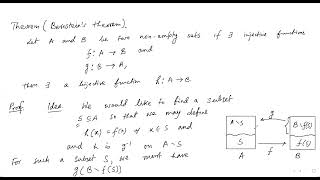 Theorem (Bernstein's theorem).
Let A and B be two non-empty sets if ∃ injective functions
f: A → B and
g: B → A,
then ∃ a bijective function h: A → B
Proof Idea We would like to find a subset
S ⊆ A so that we may define
h(x) = f(x) ∀ x ∈ S and
and h is g⁻¹ on A∖S
For such a subset S, we must have
g(B∖f(S))
g
A∖S
B∖f(S)
S
f(S)
f
A
B